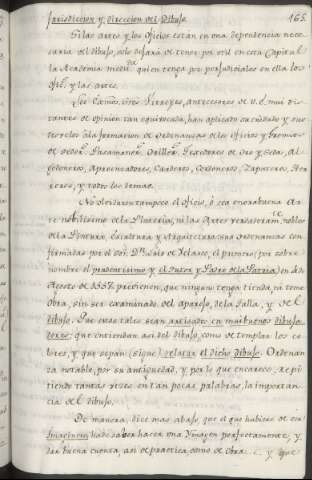 165.
Jurisdiccion y direccion del Dibujo.
Si las artes y los Oficios están en una dependencia nece-
saria del dibujo, solo dejará de tener por util en esta Capital
la Academia quien tenga por perjudiciales en ella los
ofic.s y las artes.
Los Exmôs. Sres. Virreyes, antecesores de V. E. mui dis-
tantes de opinion tan equivocada, han aplicado su cuidado y sus
desvelos á la formacion de ordenanzas de los Oficios y Gremios
de Tejedores de Oro y Seda, Al-
godoneros, Aprensadores, Cardero, Cordoneros, Zapateros, He-
rreros, y todos los demas.
No olvidaron tampoco el Oficio, ó sea enorabuena Ar-
te nobilisimo de la Plateria, ni las Artes verdaderam.te nobles
de la Pintura, Escultura y Arquitectura: sus ordenanzas con-
firmadas por el Sor. Dn. Luis de Velasco, el primero, por sobre
nombre el prudentisimo y el Tutor y Padre de la Patria, en 4 de
Agosto de 1557. previenen, que ninguno tenga tienda, ni tome
obra, sin ser examinado del aparejo, de la Talla, y del
dibujo. Que estos tales sean artizados en mui buenos dibuja-
dores: que entiendan asi del dibujo, como de templar los co-
lores, y que sepan (sigue) relatar el dicho dibujo. Ordenan-
za notable, por su antiguedad, y por lo que encarece, repi-
tiendo tantas veces en tan pocas palabras, la importan-
cia del dibujo.
De manera, dice mas abajo, que el que hubiese de ser
Imaginero, ha de saber hacer una Ymagen perfectamente, y
dar buena cuenta, asi de practica, como de obra &c. y que